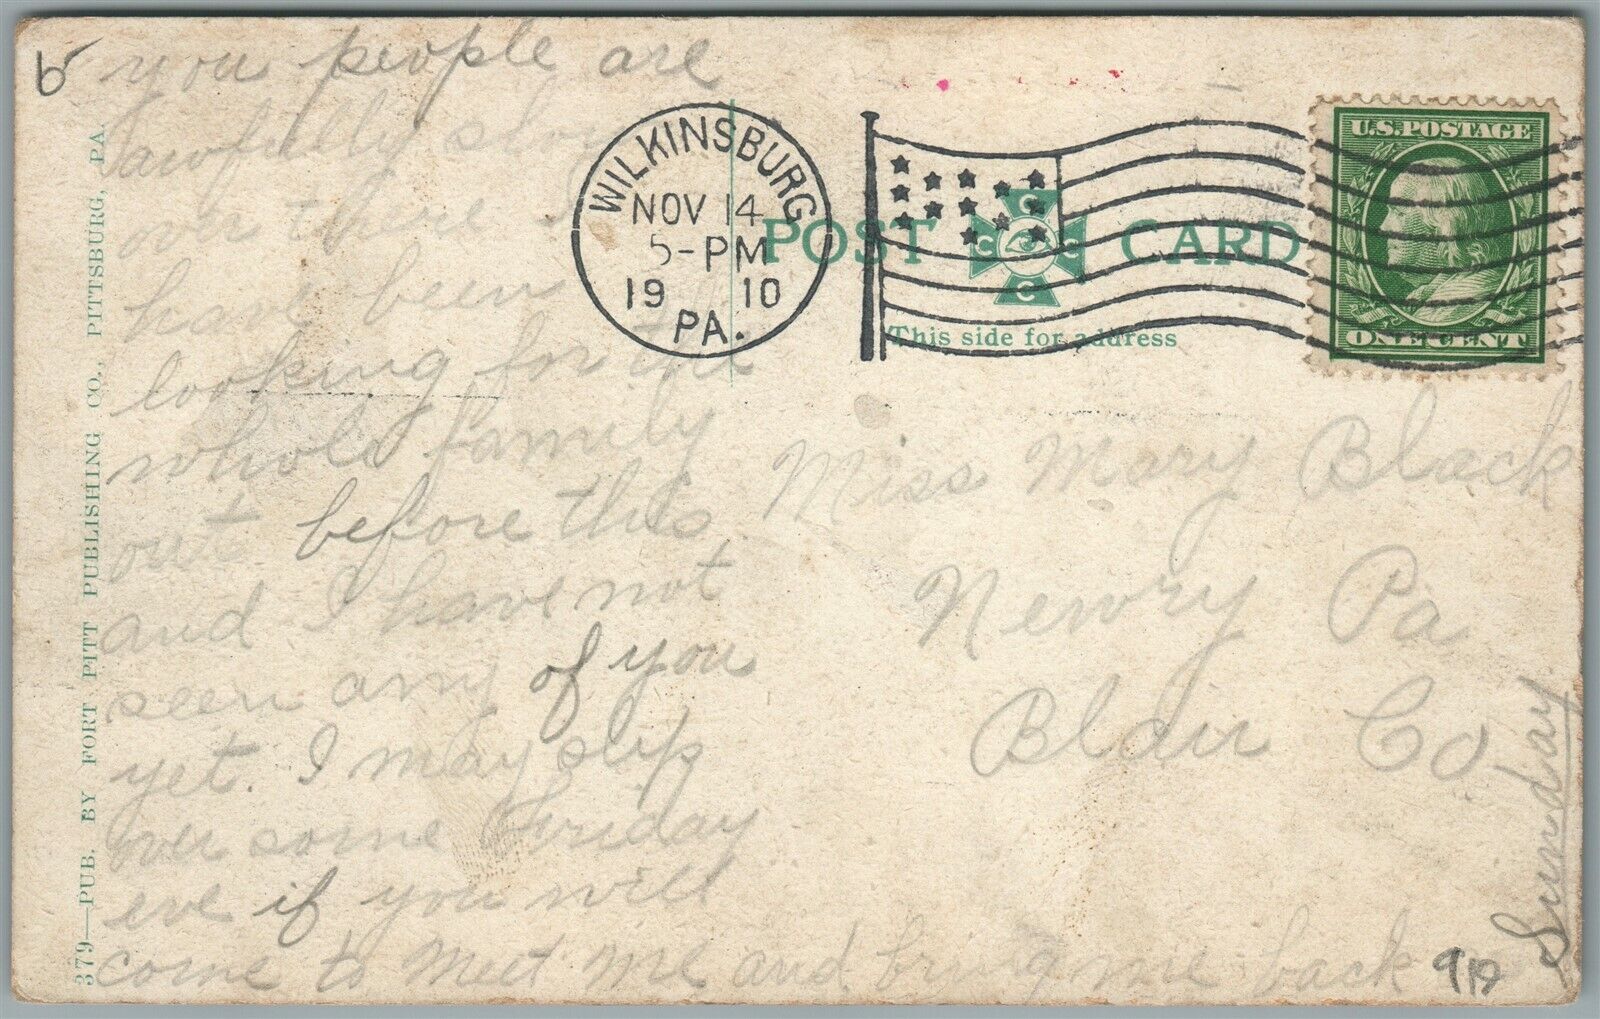 you people are
awfully slow
over there I
have been
looking for the
whole family
out before this
and I have not
seen any of you
yet. I may slip
over some Friday
eve if you will
come to meet me and bring me back
Sunday
379—PUB. BY FORT PITT PUBLISHING CO., PITTSBURG, PA.
WILKINSBURG
NOV 14
5-PM
1910
PA.
POST CARD
C C C C
This side for address
U.S. POSTAGE
ONE CENT
Miss Mary Black
Newry Pa
Blair Co.